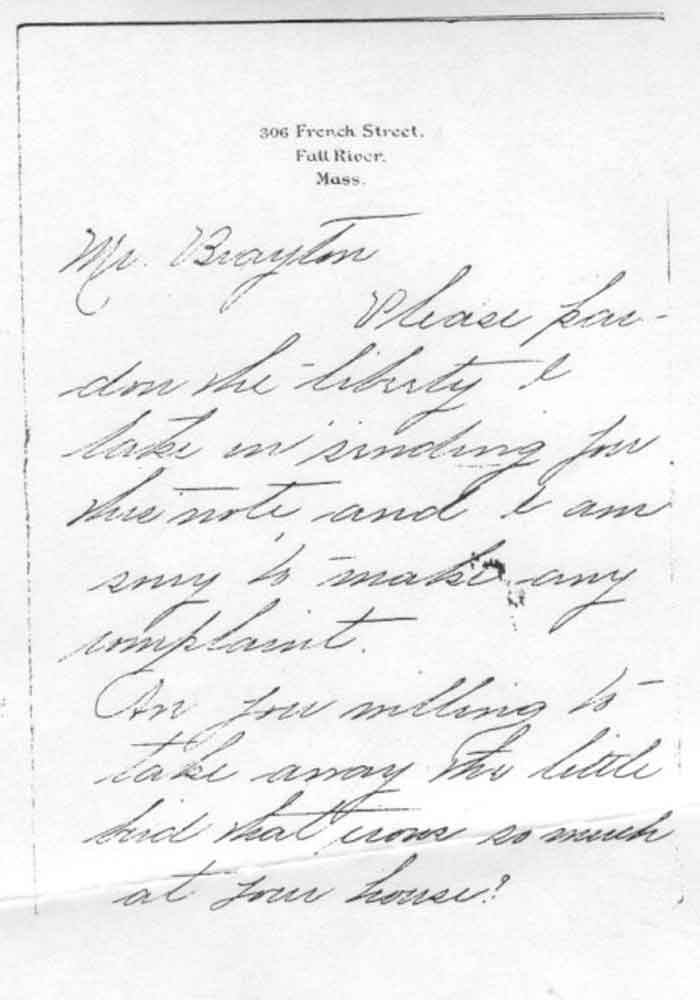 306 French Street.
Fall River.
Mass.
Mr. Brayton
Please par-
don the liberty I
take in sending you
this note and I am
sorry to make any
complaint.
Are you willing to
take away the little
bird that crows so much
at your house?